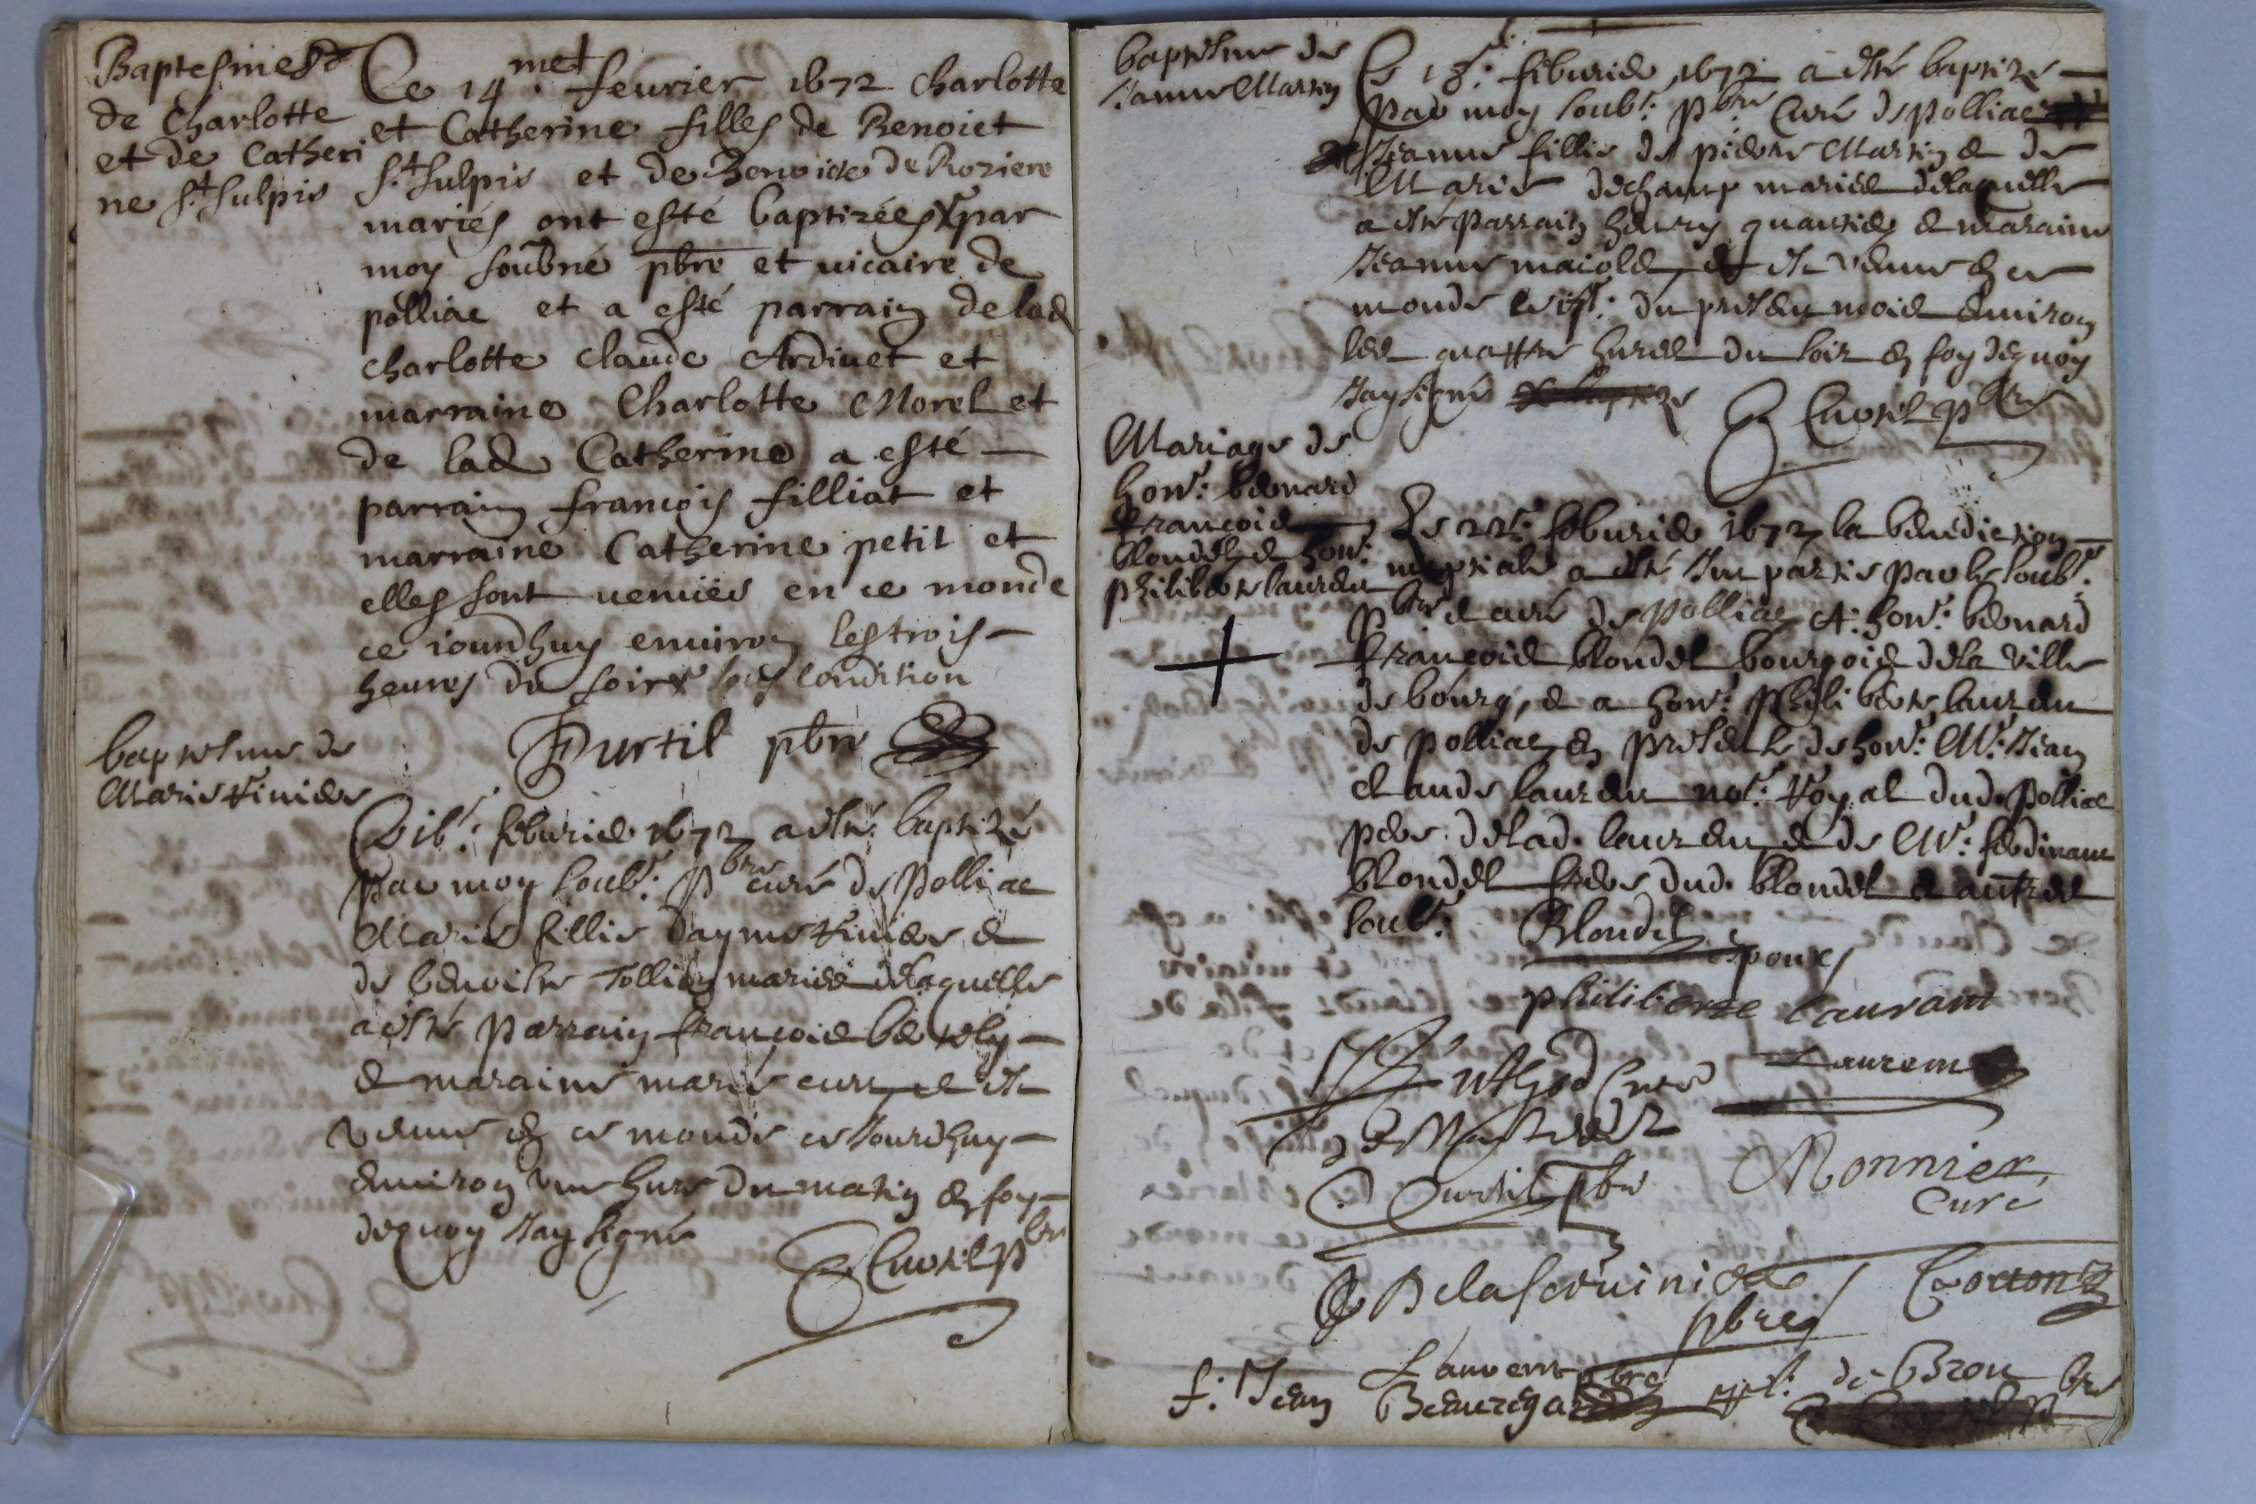 Baptesmes
de Charlotte
et de Catheri
ne St Sulpis
Ce 14me feurier 1672 Charlotte
et Catherine filles de Benoict
St Sulpis et de Benoite de Roziere
mariés ont esté baptizées par
moy soubné pbre et uicaire de
polliac et a esté parrain de lad
charlotte claude Ardiuet et
marraine Charlotte Morel et
de lad Catherine a esté
parrain francois filliat et
marraine Catherine petit et
elles sont venües en ce monde
ce iourdhuy enuiron les trois
heures du soir sous condition
Curtil pbre
baptesme de
Marie
Ce 16e: feburier 1672 a esté baptizé
par moy soubs: pbre curé de Polliac
Marie fillie dayme
de benoiste Tollion mariés de laquelle
a esté Parrain francois
et maraine marie et est
venue en ce monde ce Jourdhuy
enuiron une hure du matin en foy
dequoy Jay signé
Curtil pbre
baptesme de
Jeanne Martin
Ce 18e: feburier 1672 a esté baptizé
par moy soubs: pbre Curé de Polliac
Jeanne fillie de pierre Martin et de
Marie dechamp mariés de laquelle
a esté Parrain henry et maraine
Jeanne est venue en ce
monde le du present mois enuiron
les quattre hures du soir en foy dequoy
Jay signé
Curtil pbre
Mariage de
hon: bernard
francois
blondel et hon:
philiberte lauren
Le 22e: feburier 1672 la benediction
nuptiale a esté Impartie par le soubs:
pbre et curé de Polliac A: hon: bernard
francois blondel bourgois de la ville
de bourg, et a hon: philiberte lauren
de Polliac en presence de hon: Mr: Jean
claude lauren not: Royal dud. Polliac
pere de lad. lauren et de Mr: ferdinant
blondel frere dud. blondel et autres
soubs:
Blondel
Epoux
philiberte laurant
Laurent
Curtil pbre
Monnier
Curé
Delaseruiniere
pbre
Laurent pbre
f: Jean Beauregard de Brou